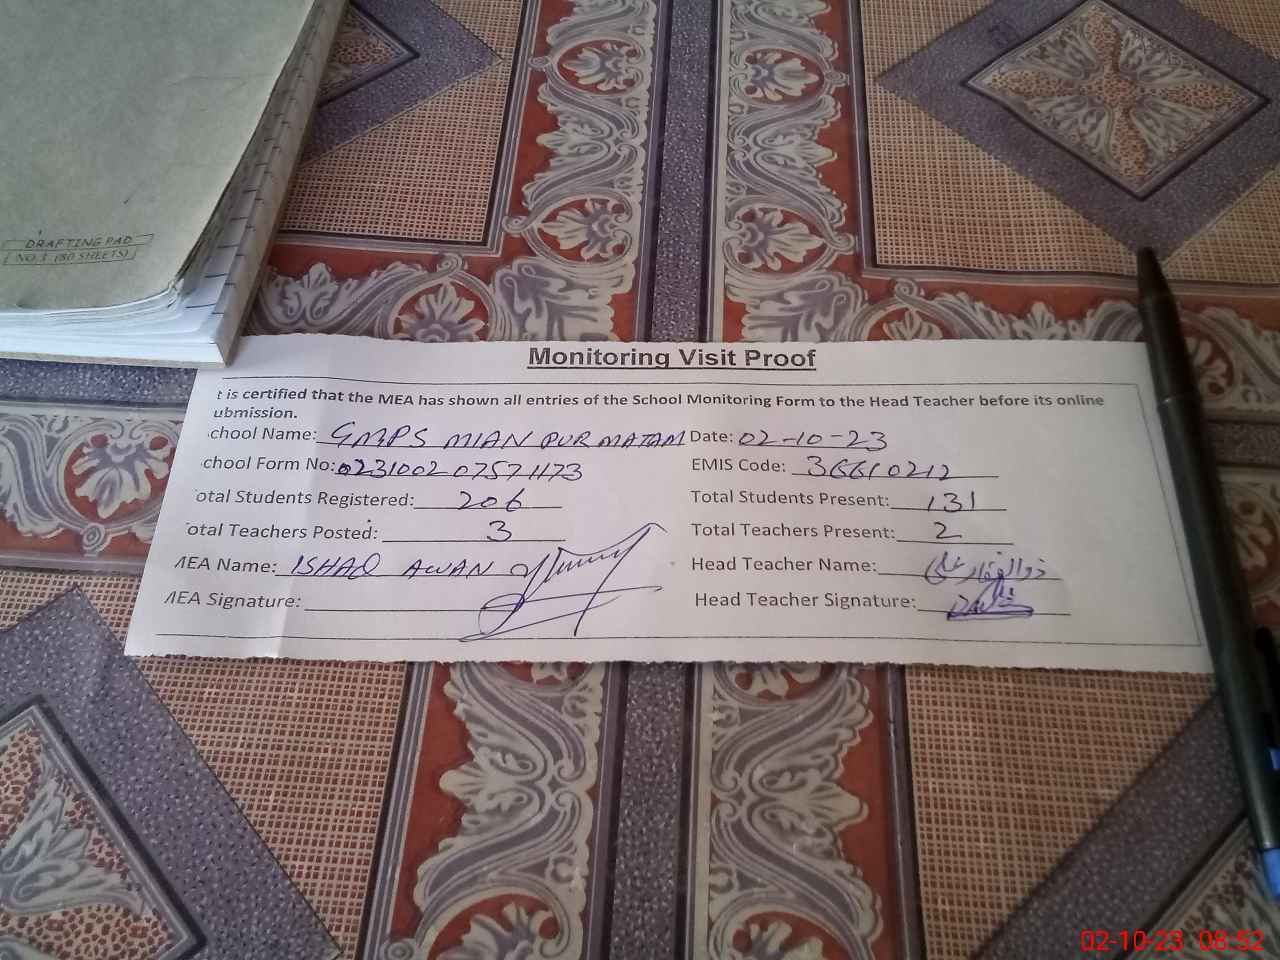 DRAFTING PAD
NO.3 (80 SHEETS)
Monitoring Visit Proof
t is certified that the MEA has shown all entries of the School Monitoring Form to the Head Teacher before its online
ubmission.
chool Name: GMPS MIAN PUR MATAM Date: 02-10-23
chool Form No: 0231002 07571173 EMIS Code: 36610212
otal Students Registered: 206 Total Students Present: 131
otal Teachers Posted: 3 Total Teachers Present: 2
MEA Name: ISHAQ AWAN Head Teacher Name: ذوالفقار علی
MEA Signature: Head Teacher Signature:
02-10-23 08:52